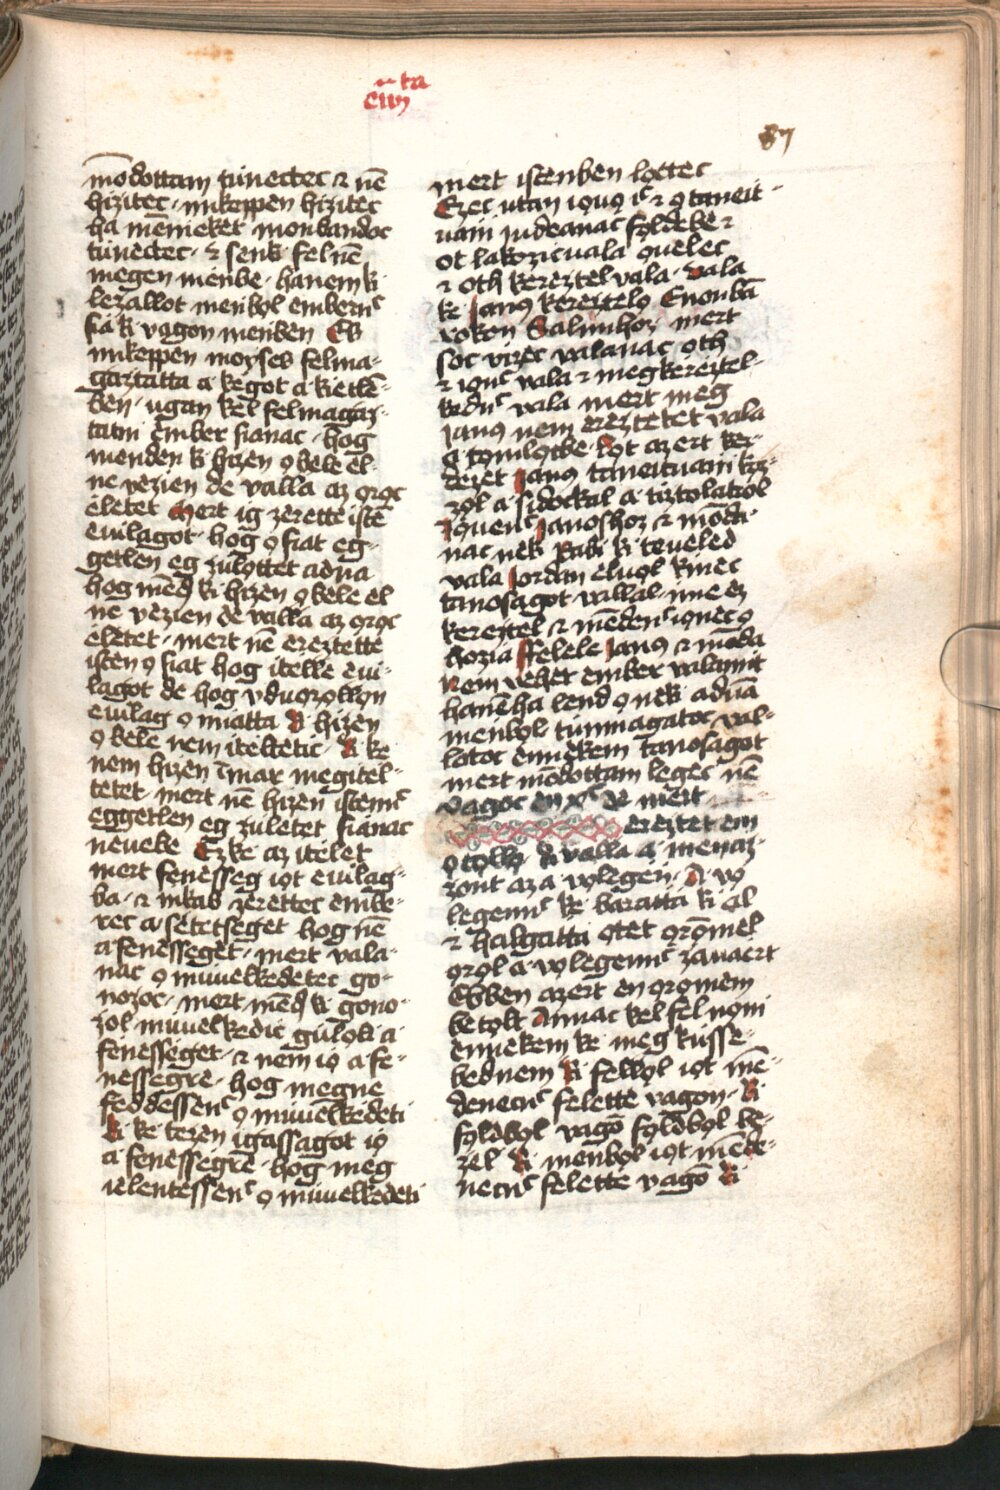 87
mōdottam túnectec ⁊ nē
hizitec · mikeppen hizitec
ha mēnieket monbandoc
túnectec · ⁊ senk fel nē
megen mēnbe · hanem ki
lezallot menbo̗l embernc̄
fia ki vagon menben Es
mikeppen moyses felma-
gaztatta a kegot a kietlē-
ben · ugan kel felmagaz-
tatni ēmber fianac · hog
menden ki hizen o̗ bele el-
ne vezien de valla az o̗ro̗c
eletet Mert ig zerette istē
euilagot · hog o̗ fiat eg-
getlen eg zúlo̗ttet adna
hog mēd̄ ki hizen o̗ bele el
ne vezien de valla az o̗ro̗c
eletet · mert nē ereztette
isten o̗ fiat hog itelle eui-
lagot de hog vduo̗zo̗llo̗n
euilag o̗ miatta Ki hizen
o̗ bele nem iteltetic · Ki ke
nem hizen īmar megitel-
tetet · mert nē hizen istennc̄
eggetlen eg zúletet fianac
neuebe Ez ke az itelet
mert fenesseg io̗t euilag-
ba · ⁊ inkab zerettec embe-
rec a setetseget hog nē
a fenesseget · mert vala-
nac o̗ miuelkedetec go-
nozoc · mert mēd̄ ki gono-
zol miuelkedic gúlo̗li a
fenesseget · ⁊ nem io̗ a fe-
nessegre · hog megne
feddessenc̄ o̗ miuelkedeti
Ki ke tezen igassagot io̗
a fenessegre · hog meg
ielentessenc̄ o̗ miuelkedeti
mert istenben lo̗ttec
Ezec vtan io̗uo̗ ic̄ ⁊ o̗ taneit-
uani judeanac fo̗ldebe ⁊
ot lakozicuala o̗uelec
⁊ oth kereztel vala · vala
ke janus kereztelo̗ Enonbā
vo̗ko̗n Salimhoz mert
soc vizec valanac oth
⁊ io̗nc̄ vala ⁊ megkereztel-
kednc̄ vala mert meg
janus nem ereztetet vala
a to̗mlo̗cbe Lo̗t azert ker-
dezet janus taneituani ko̗z-
zo̗l a sidockal a tiztolatrol
io̗uenc̄ janoshoz ⁊ mōda-
nac neki Rabi ki teueled
vala jordan eluo̗l kinec
tanosagot vallal · ime ez
kereztel ⁊ mēdenc̄ io̗nec o̗
hozia ffelele janus ⁊ mōda
Nem vehet ember valamit
hanē ha lend o̗ neki aduā
menbo̗l tinmagatoc val-
latoc ennekem tanosagot
mert mōdottam legec nē
vagoc en xc̄ de mert
ereztettem
o̗ to̗lle Ki valla a menaz-
zont az a vo̗legen · A vo̗
legennc̄ ke baratta ki al
⁊ halgatta o̗tet o̗ro̗mel
o̗ro̗l a vo̗legennc̄ zauaert
Ebben azert en o̗ro̗mem
betolt Annac kel fel no̗ni
ennekem ke meg kússe-
bednem Ki fello̗l io̗t mē-
denecnc̄ felette vagon · Ki
fo̗ldbo̗l vagō fo̗ldbo̗l be-
zel Ki menbo̗l io̗t mēde-
necnc̄ felette vagō Ki